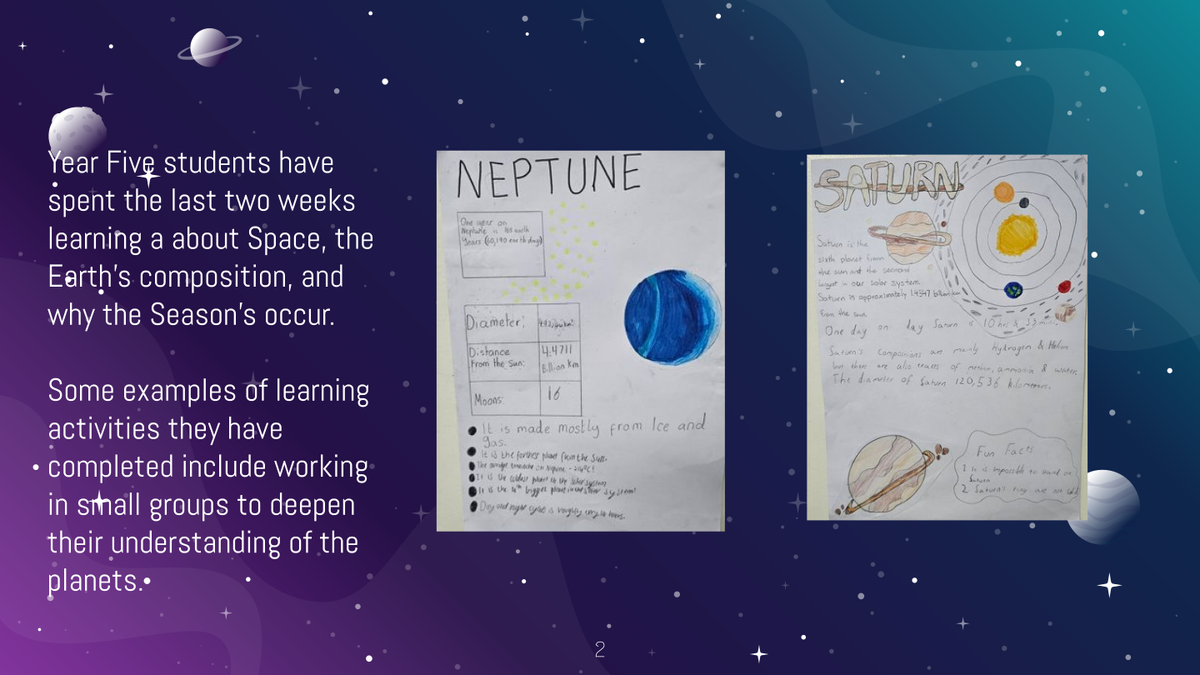 Year Five students have
spent the last two weeks
learning a about Space, the
Earth's composition, and
why the Season's occur.
Some examples of learning
activities they have
completed include working
in small groups to deepen
their understanding of the
planets.
NEPTUNE
One year on
Neptune is earth
years (60,190 earth days)
Diameter:
Distance
From the sun: 4.4711
Billion Km
Moons: 16
It is made mostly from Ice and
gas.
It is the furthest planet from the Sun.
The average on Neptune
It is the coldest planet in the solar system
It is the 4th biggest planet in the solar system!
Day and night cycle is roughly hours.
SATURN
Saturn is the
sixth planet from
the sun and the second
largest in our solar system
Saturn is approximately 1.4947 billion km
from the sun.
One day on Saturn is 10 hrs & mins.
Saturn's are mainly hydrogen & Helium
but there are also traces of ammonia & water.
The diameter of Saturn 120,536 kilometers.
Fun Facts
1 It is impossible to on
Saturn
2 Saturn's rings are
2